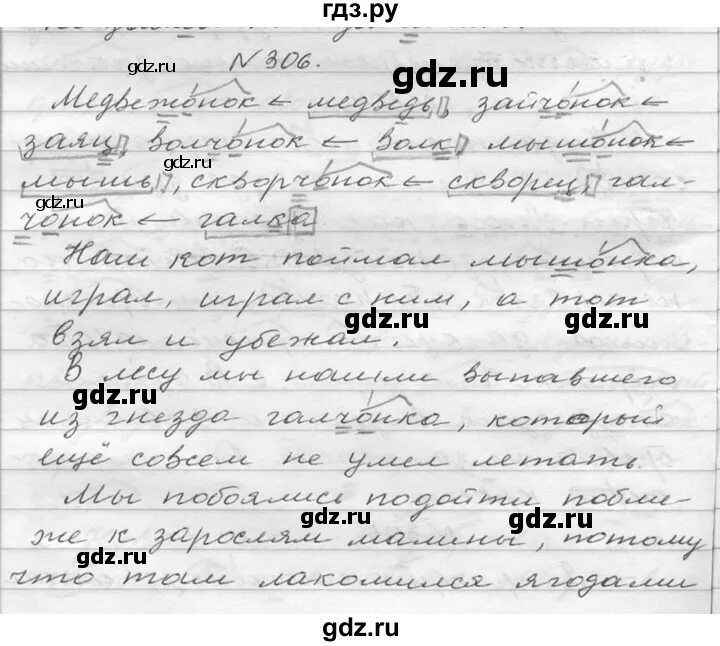 гдз.ру
N 306.
Медвежонок ← медведь, зайчонок ←
заяц, волчонок ← волк, мышонок ←
мышь, скворчонок ← скворец, гал-
чонок ← галка
Наш кот поймал мышонка,
играл, играл с ним, а тот
взял и убежал.
В лесу мы нашли выпавшего
из гнезда галчонка, который
ещё совсем не умел летать.
Мы побоялись подойти побли-
же к зарослям малины, потому
что там лакомился ягодами
gdz.ru
gdz.ru
gdz.ru
gdz.ru
gdz.ru
gdz.ru
gdz.ru
gdz.ru
gdz.ru
gdz.ru
gdz.ru
gdz.ru